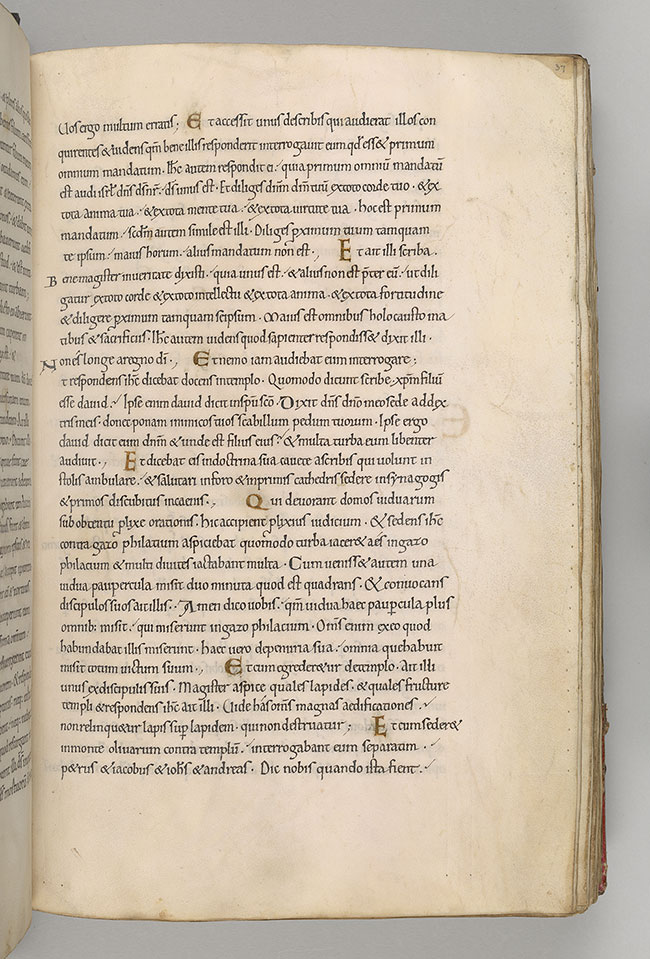 37
Uos ergo multum erratis; Et accessit unus de scribis qui audierat illos con
quirentes & uidens qm̄ bene illis responderit interrogauit eum qd̄ ess& primum
omnium mandatum. Ihc autem respondit ei. quia primum omniū mandatū
est audi isrl̄ dn̄s ds̄ nr̄. ds̄ unus est. Et diliges dnm̄ dm̄ tuū ex toto corde tuo. & ex
tota anima tua. & ex tota mente tua. & ex tota uirtute tua. hoc est primum
mandatum. scdm̄ autem simile est illi. Diliges pximum tuum tamquam
te ipsum. maius horum. aliud mandatum non est. Et ait illi scriba.
Bene magister in ueritate dixisti. quia unus est. & alius non est pter eū. ut dili
gatur ex toto corde & ex toto intellectu & ex tota anima. & ex tota fortitudine
& diligere pximum tamquam seipsum. Maius est omnibus holocausto ma
tibus & sacrificiis. Ihc autem uidens quod sapienter respondiss& dixit illi.
Non es longe a regno dī. Et nemo iam audiebat eum interrogare;
t respondens ihc dicebat docens in templo. Quomodo dicunt scribe xpm̄ filiū
esse dauid. Ipse enim dauid dicit in spū sc̄o. Dixit dn̄s dn̄o meo sede a dex
tris meis. donec ponam inimicos tuos scabillum pedum tuorum. Ipse ergo
dauid dicit eum dnm̄ & unde est filius eius? & multa turba eum libenter
audiuit. Et dicebat eis in doctrina sua cauete a scribis qui uolunt in
stolis ambulare. & salutari in foro & in primis cathedris sedere in synagogis
& primos discubitus in caenis. Qui deuorant domos uiduarum
sub obtentu plixe orationis. hi accipient plixius iudicium. & sedens ihc
contra gazophilatium aspiciebat quomodo turba iacer& aes in gazo
philacium & multi diuites iactabant multa. Cum veniss& autem una
uidua paupercula misit duo minuta quod est quadrans. & conuocans
discipulos suos ait illis. Amen dico uobis. qm̄ uidua haec paupcula plus
omnib: misit. qui miserunt in gazophilacium. Omnes enim ex eo quod
habundabat illis miserunt. haec vero de penuria sua. omnia que habuit
misit totum uictum suum. Et cum egrederetur de templo. Ait illi
unus ex discipulis suis. Magister aspice quales lapides. & quales structure
templi & respondens ihc ait illi. Uides has om̄s magnas aedificationes.
non relinqu&ur lapis sup lapidem. qui non destruatur; Et cum seder&
in monte oliuarum contra templū. interrogabant eum separatim.
p&rus & iacobus & ioh̄s & andreas. Dic nobis quando ista fient.